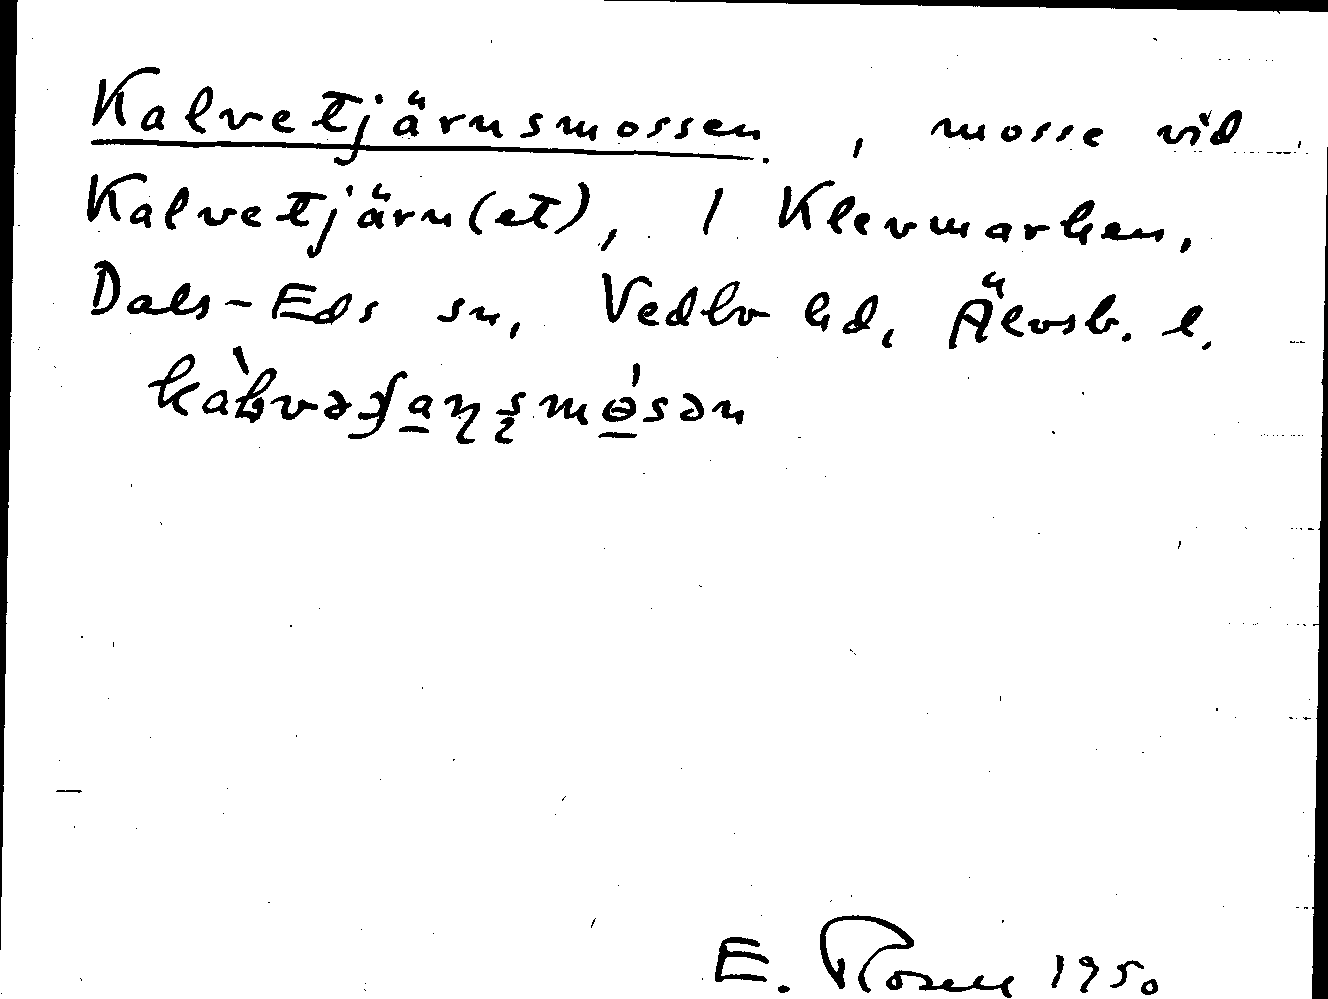 Kalvetjärnsmossen, mosse vid
Kalvetjärn(et), 1 Klevmarken,
Dals-Eds sn, Vedbo hd, Älvsb. l.
E. Rosell 1950